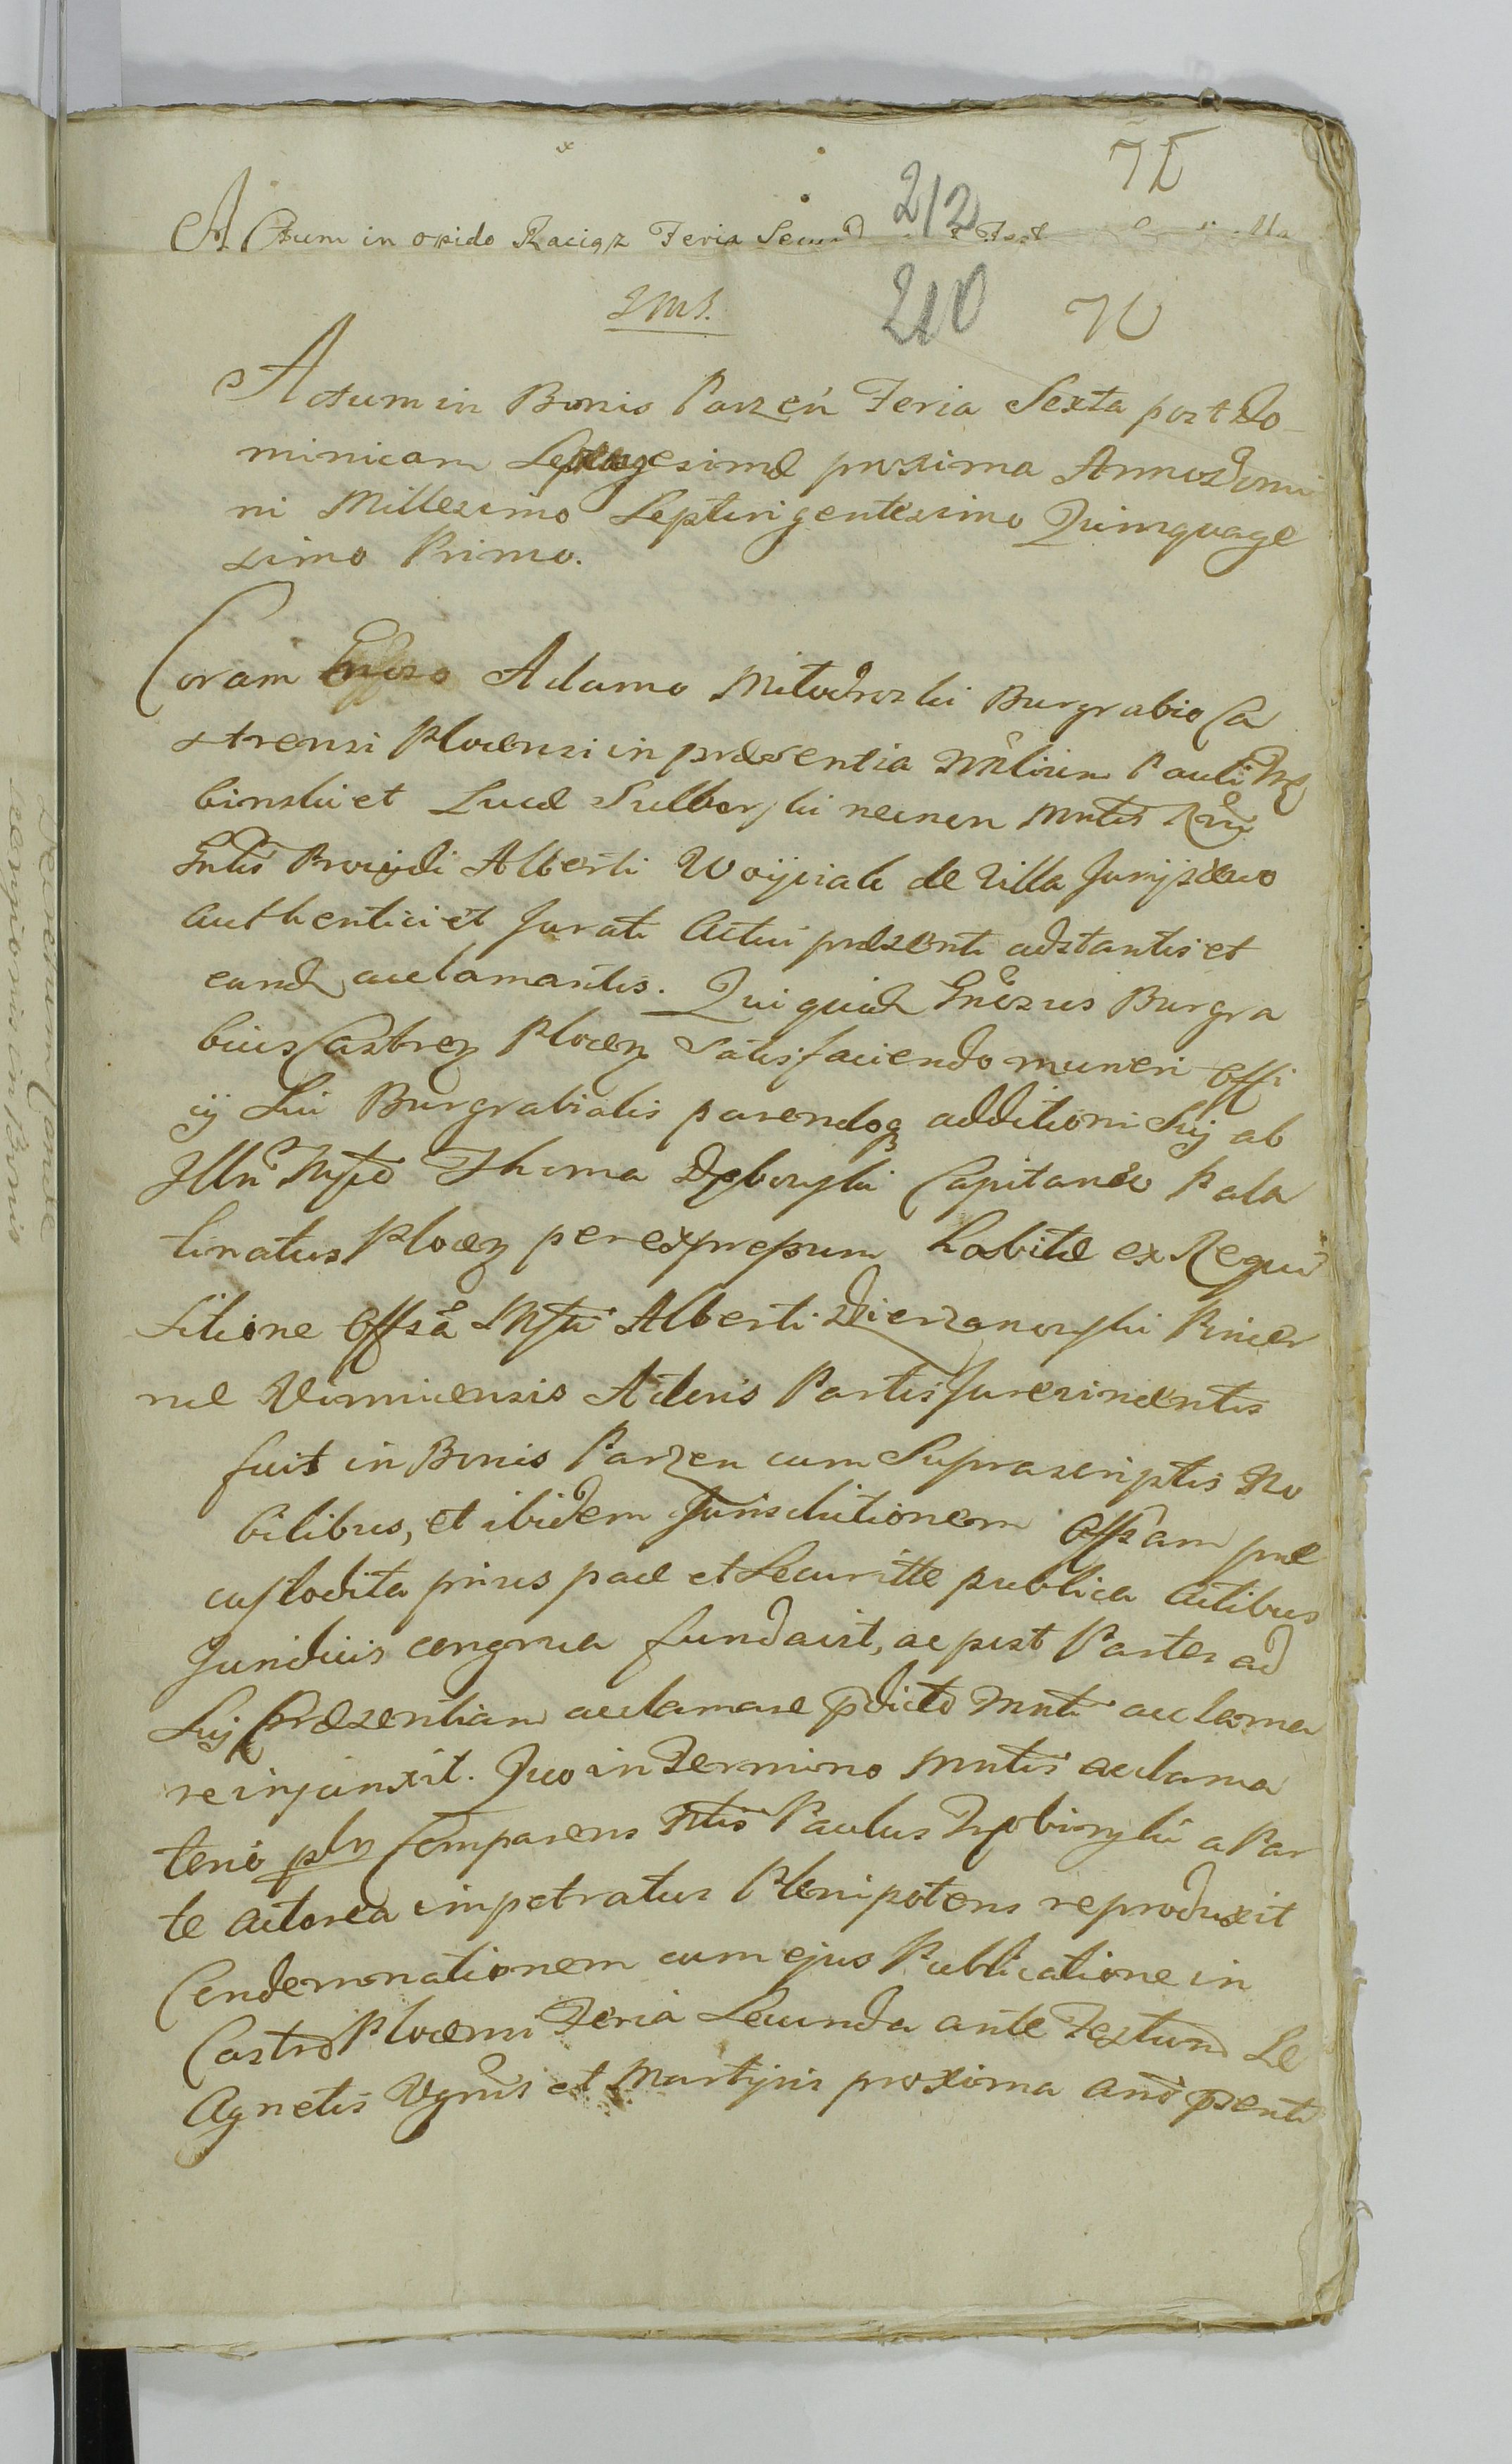 75
212
Actum in opido Raciąz Feria Secund
IMI.
210 70
Actum in Bonis Parzeń Feria Sexta post Do
minicam Septuagesimæ proxima Anno Domi
ni Millesimo Septuigentesimo Quinquage
simo Primo.
Coram Adamo Mitodroski Burgrabio Ca
strensi Plocensi in præsentia Nbilium Pauli
binski et Lucæ Sulborski necnon Mntis Rni
Gnlis Providi Alberti Woyciak de Villa
authentici et Jurati Actui præsenti adstantis et
eund acclamantis. Qui quid Gnrosus Burgra
bius Castren Plocen Satisfaciendo muneri offi
cij Sui Burgrabialis parendoq additioni Suj ab
Illri Mfco Thoma Dębowski Capitaneo Pala
tinatus Plocen per expressum habitæ ex Requi
sitione Offsa Mfci Alberti Dierzanowski Pincer
næ Actoris Partis Jurevincentis
fuit in Bonis Parzen cum Suprascriptis No
bilibus, et ibidem Jurisdictionem Offsam præ
custodita prius pace et Securitte publica actibus
Juridicis congrua fundavit, ac post Partes ad
Suj Præsentiam acclamare pdicto Mnti acclama
re injunxit. Quo in Termino Mntis acclama
tene pln Comparens Nlis Paulus a Par
te actorea impetratus Plenipotens reproduxit
Condemnationem cum ejus Publicatione in
Castro Plocensi Feria Secunda ante Festum Sæ
Agnetis Vgnis et Martyris proxima anno psenti